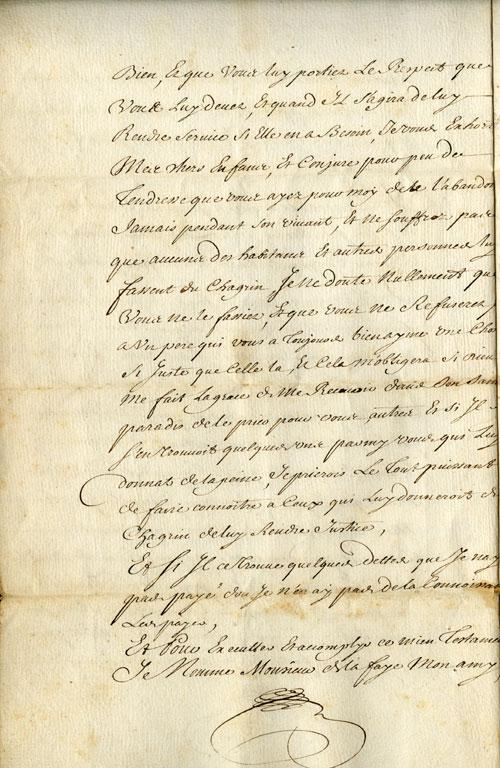 Bien, Et que Vous luy portiez Le Respect que
Vous Luy devez, Et quand Il s'agira de luy
Rendre Service Si Elle en a Besoin, Je vous Exhorte
Mes chers Enfans, Et Conjure pour peu de
Tendresse que vous ayez pour moy de ne l'abandon
Jamais pendant son vivant, Et ne souffrez pas
que aucuns des habitans Et autres personnes luy
fassent du Chagrin Je ne doute Nullement que
Vous ne le fassiez, Et que vous ne Refuserez
a Un pere qui vous a Toujours bien aymé une Chose
Si Juste que Celle la, Et Cela m'obligera Si Dieu
me fait La grace de Me Recevoir dans Son Saint
paradis de le prier pour vous autres Et Si Il
s'en trouvoit quelques uns parmy vous qui Luy
donnat de la peine, Je prierois Le Tout puissant
de faire connoître a Ceux qui Luy donneroit du
Chagrin de luy Rendre Justice,
Et Si Il ce trouve quelques dettes que Je n'ay
pas payé dou Je n'en ay pas de la Connoissance
Les payer,
Et Pour Executter Et accomplyr ce mien Testament
Je Nomme Monsieur de la faye Mon amy